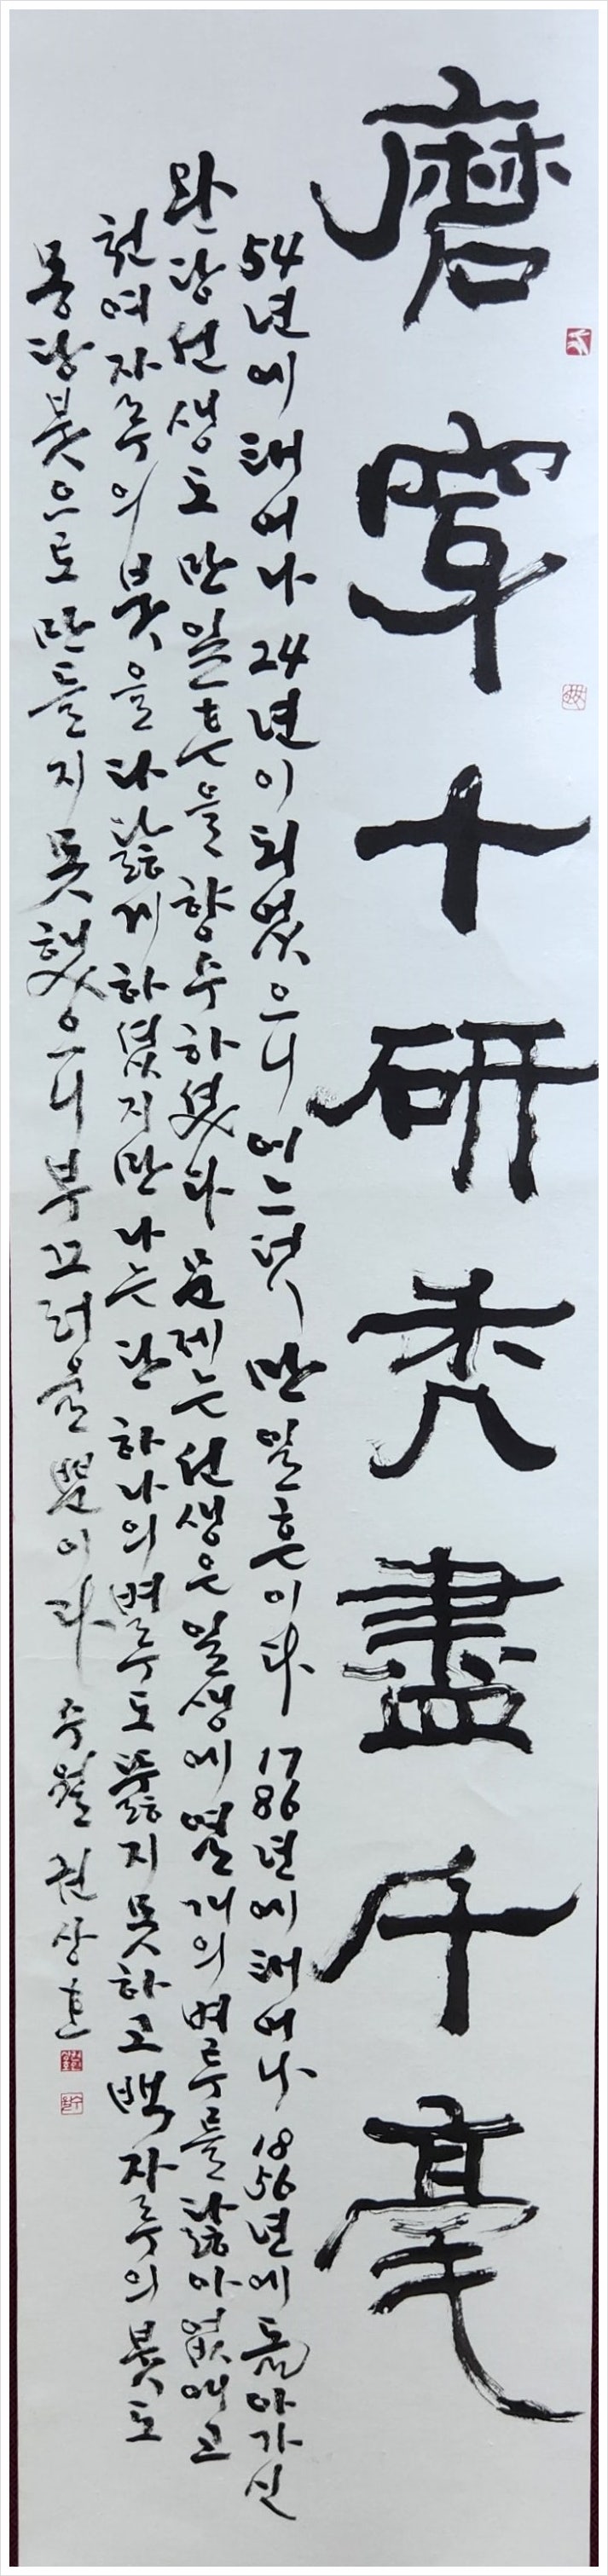 磨穿十研禿盡千毫
54년에 태어나 24년이 되었으니 어느덧 만 일흔이다 1786년에 태어나 1856년에 돌아가신
완당선생도 만 일흔을 향수하셨다 문제는 선생은 일생에 열 개의 벼루를 닳아 없애고
천여 자루의 붓을 다 닳게 하셨지만 나는 단 하나의 벼루도 뚫지 못하고 백 자루의 붓도
몽당붓으로 만들지 못했으니 부끄러울 뿐이다 수월 권상호